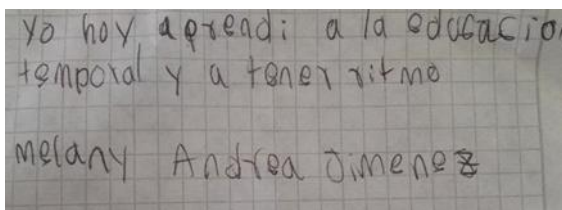 yo hoy aprendi a la educacio
temporal y a tener ritmo
melany Andrea Jimenez